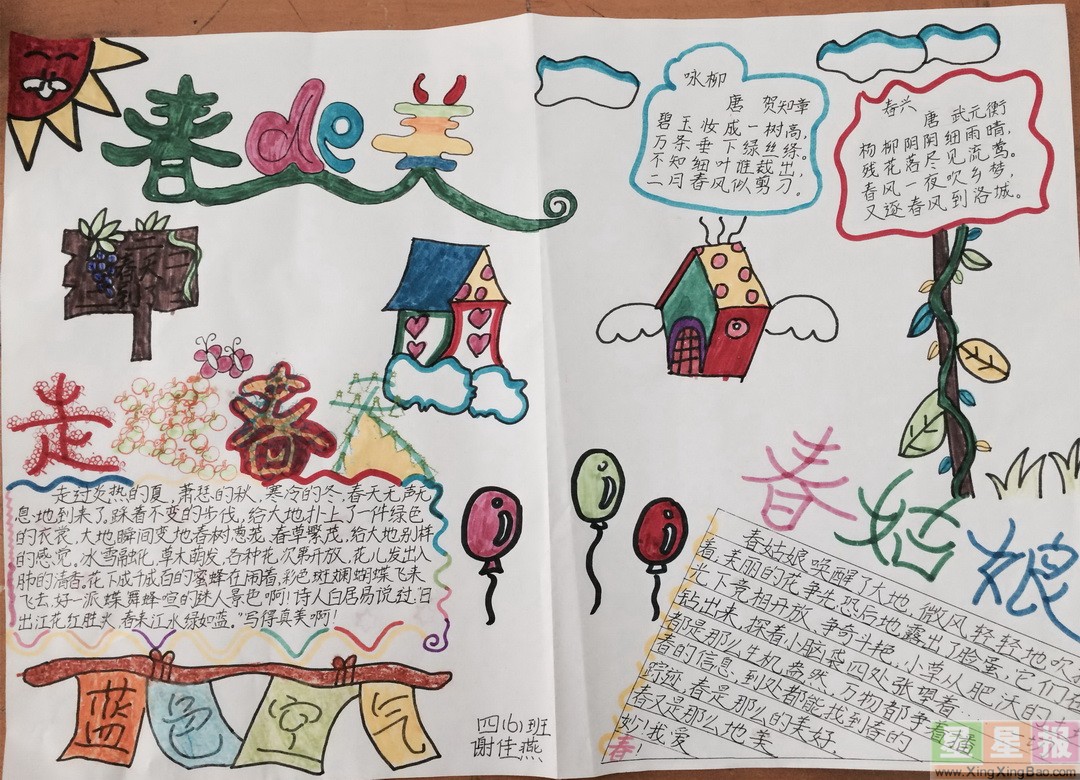 春de美
咏柳
唐 贺知章
碧玉妆成一树高,
万条垂下绿丝绦。
不知细叶谁裁出,
二月春风似剪刀。
春兴
唐 武元衡
杨柳阴阴细雨晴,
残花落尽见流莺。
春风一夜吹乡梦,
又逐春风到洛城。
春天
到了
走进春天
走过炎热的夏、萧愁的秋、寒冷的冬,春天无声无
息地到来了。踩着不变的步伐,给大地扑上了一件绿色
的衣裳,大地瞬间变地春树葱茏,春草繁茂,给大地别样
的感觉。冰雪融化,草木萌发,各种花次第开放,花儿发出入
脾的清香,花下成千成百的蜜蜂在闹着,彩色斑斓蝴蝶飞来
飞去,好一派蝶舞蜂喧的迷人景色啊!诗人白居易说过,"日
出江花红胜火,春来江水绿如蓝。"写得真美啊!
蓝色空气
四(6)班
谢佳燕
春姑娘
春姑娘唤醒了大地,微风轻轻地吹
着,美丽的花争先恐后地露出了脸蛋,它们在
光下竞相开放,争奇斗艳,小草从肥沃的
钻出来,探着小脑袋四处张望着…
都是那么生机盎然,万物都争着播
春的信息,到处都能找到春的
踪迹,春是那么的美好,
春又是那么地美
妙!我爱
春!
红星报
www.XingXingBao.com